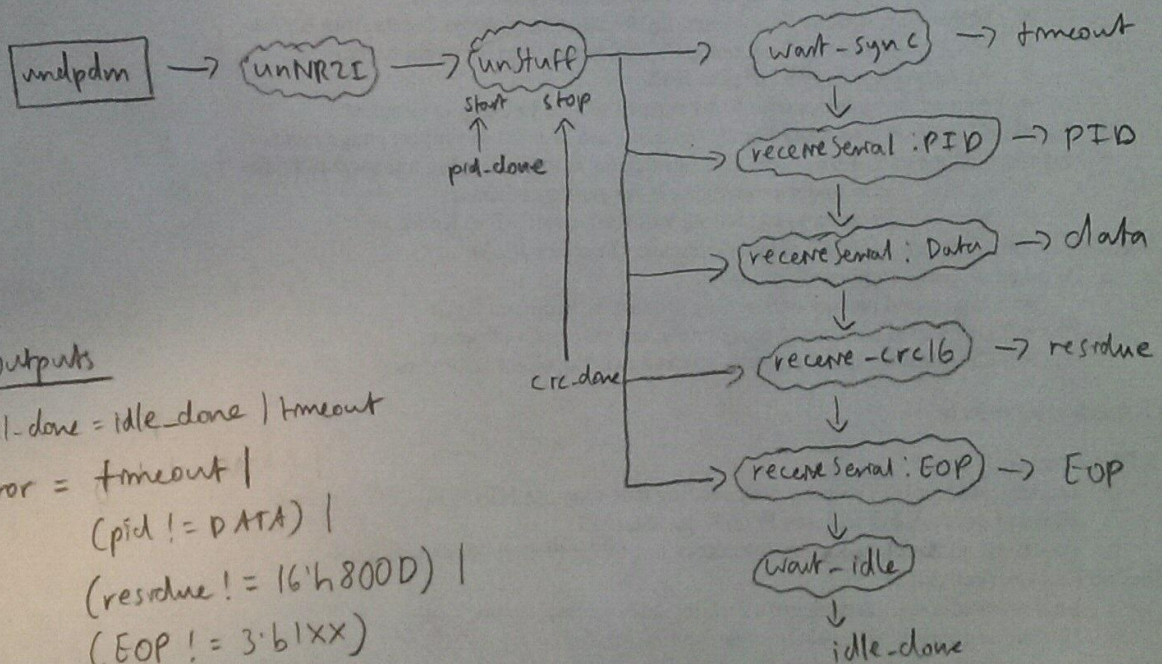 undpdm
unNRZI
unstuff
start stop
pid_done
crc_done
wait_sync
timeout
receiveSerial: PID
PID
receiveSerial: Data
data
receive_crc16
residue
receiveSerial: EOP
EOP
wait_idle
idle_done
utputs
l_done = idle_done | timeout
ror = timeout |
(pid != DATA) |
(residue != 16'h800D) |
(EOP != 3'b1XX)